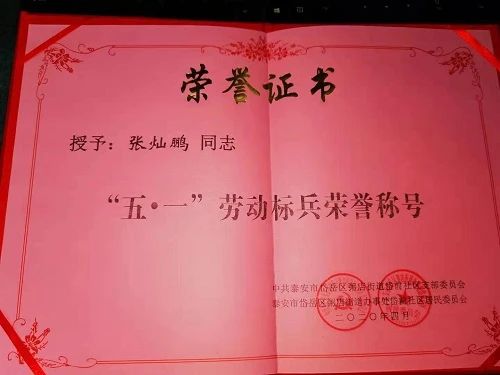 荣誉证书
授予：张灿鹏 同志
“五·一”劳动标兵荣誉称号
中共泰安市岱岳区粥店街道岱前社区支部委员会
泰安市岱岳区粥店街道办事处岱前社区居民委员会
二〇二〇年四月